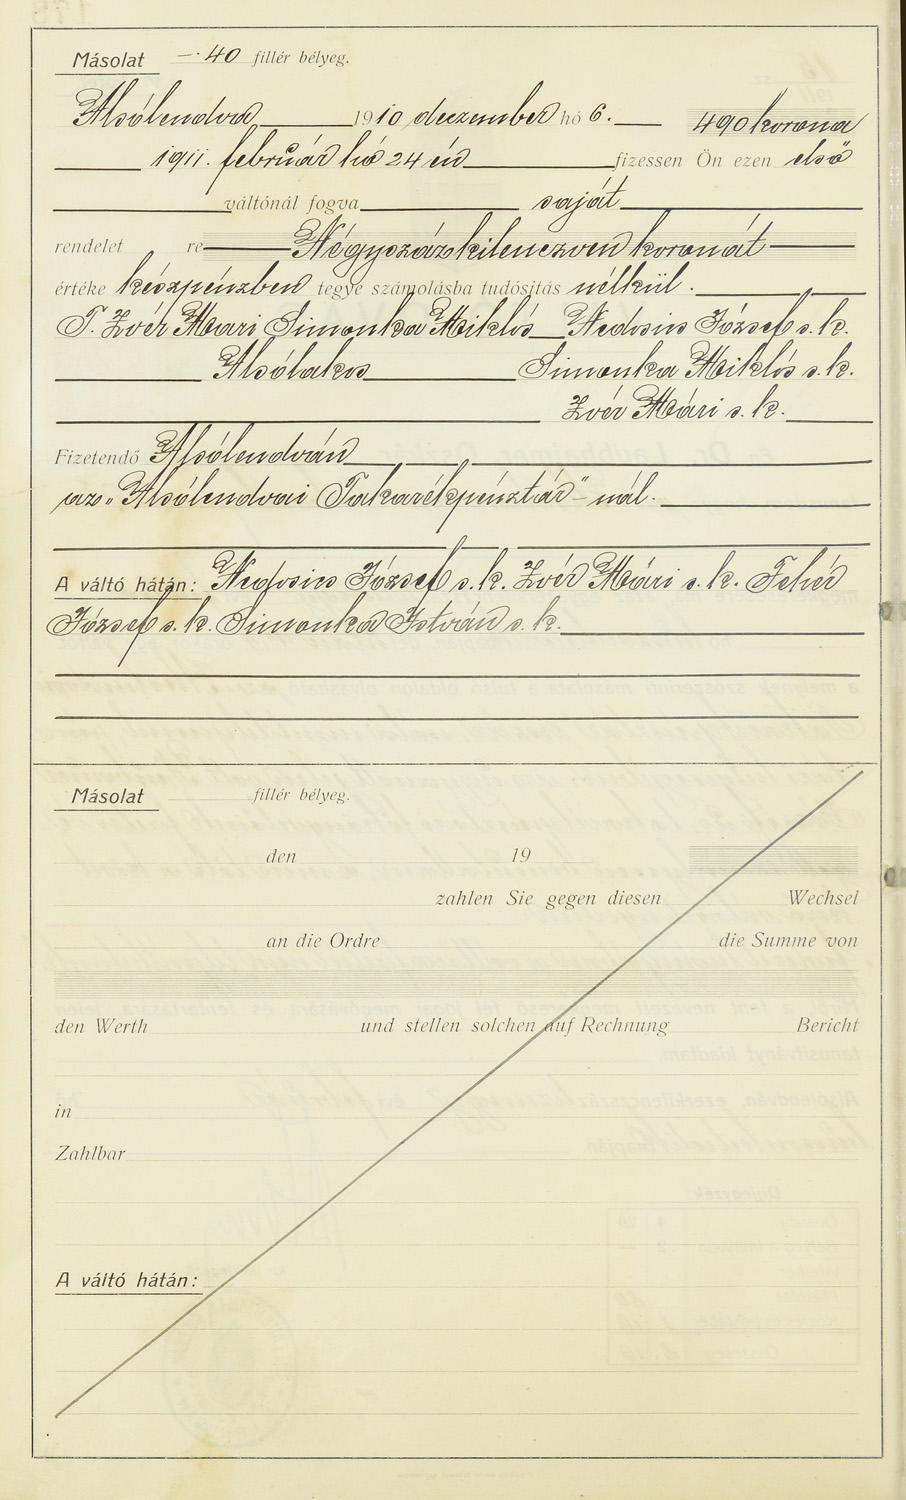 Másolat —·40 fillér bélyeg.
Alsólendva 1910 deczember hó 6. 490 korona
1911. február hó 24 én fizessen Ön ezen első
váltónál fogva saját
rendelet re Négyszázkilenczven koronát
értéke készpénzben tegye számolásba tudósítás nélkül.
T. Zvér Mari Simonka Miklós Nedosics József s. k.
Alsólakos Simonka Miklós s. k.
Zvér Mári s. k.
Fizetendő Alsólendván
az „Alsólendvai Takarékpénztár"-nál.
A váltó hátán: Nedosics József s. k. Zvér Mári s. k. Fehér
József s. k. Simonka István s. k.
Másolat fillér bélyeg.
den 19
zahlen Sie gegen diesen Wechsel
an die Ordre die Summe von
den Werth und stellen solchen auf Rechnung Bericht
in
Zahlbar
A váltó hátán: